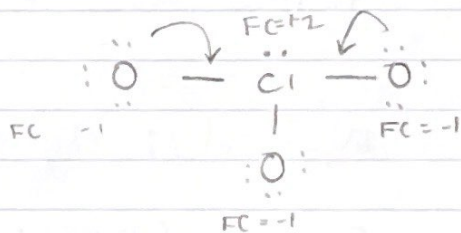 FC=+2
:O — Cl — O:
FC -1 FC = -1
:O:
FC = -1